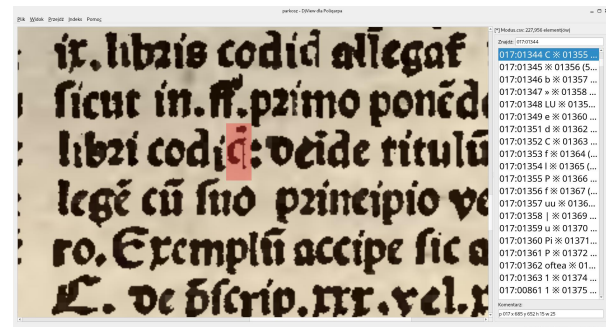 parkosz - DjView dla Poliqarpa
Plik Widok Przejdź Indeks Pomoc
ir. libꝛis codić allegat̄
ſicut in.ff.pꝛimo ponēdo
libꝛi codic̄: deīde titulū
legē cū ſuo pꝛincipio ve
ro. Exemplū accipe ſic a
L. de ōſcrip.
[*] Modus.csv: 227,950 element(ów)
Znajdź: 017:01344
017:01344 C ※ 01355 ...
017:01345 ※ 01356 (5...
017:01346 b ※ 01357 ...
017:01347 » ※ 01358 ...
017:01348 LU ※ 0135...
017:01349 e ※ 01360 ...
017:01351 d ※ 01362 ...
017:01352 C ※ 01363 ...
017:01353 f ※ 01364 (...
017:01354 l ※ 01365 (...
017:01355 P ※ 01366 ...
017:01356 f ※ 01367 (...
017:01357 uu ※ 0136...
017:01358 | ※ 01369 ...
017:01359 u ※ 01370 ...
017:01360 Pi ※ 01371...
017:01361 P ※ 01372 ...
017:01362 oftea ※ 01...
017:01363 1 ※ 01374 ...
017:00861 1 ※ 01375 ...
Komentarz:
p 017 x 685 y 652 h 15 w 25